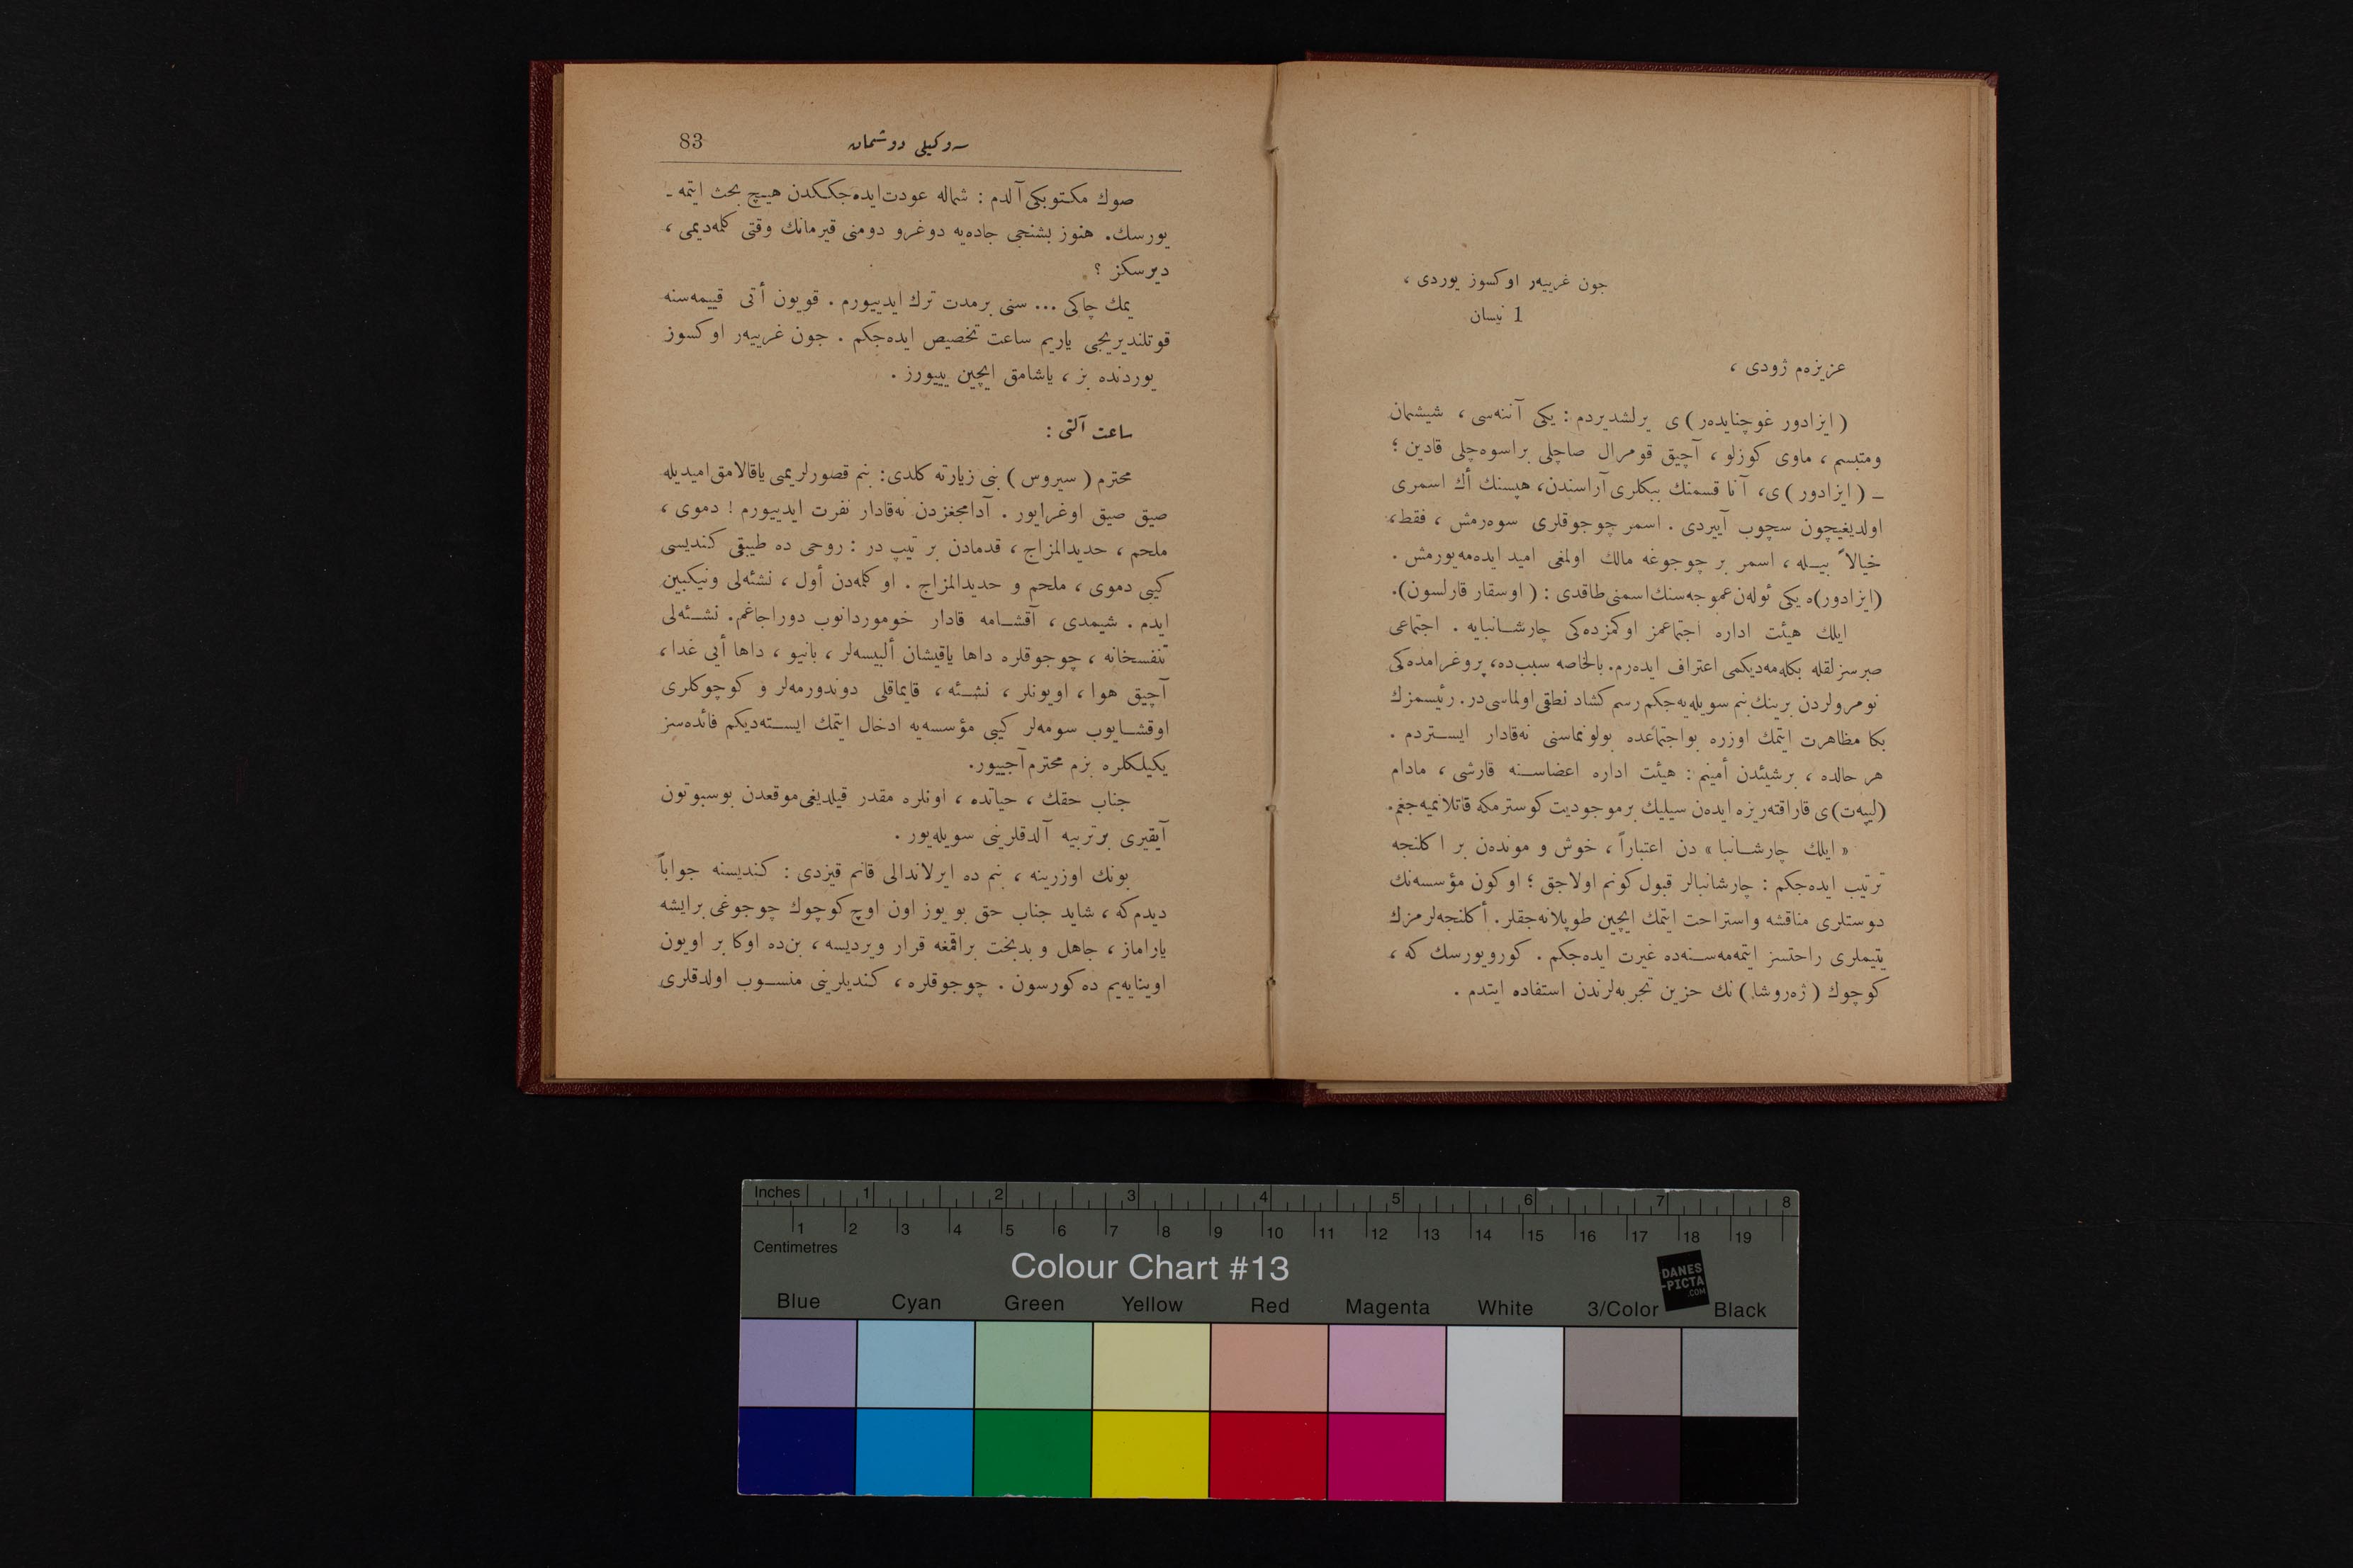 جون غرييه‌ر اوكسوز يوردى ،
1 نيسان
عزيزه‌م ژودى ،
( ايزادور غوچنايده‌ر ) ى يرلشديردم : يكى آننه‌سى ، شيشمان
ومتبسم ، ماوى كوزلو ، آچيق قومرال صاچلى براسوه‌چلى قادين ؛
ـ ( ايزادور ) ى، آنا قسمنك ببكلرى آراسندن، هپسنك أك اسمرى
اولديغيچون سچوب آييردى . اسمر چوجوقلرى سوه‌رمش ، فقط،
خيالاً بيـله ، اسمر بر چوجوغه مالك اولمغى اميد ايده‌مه‌يورمش .
(ايزادور)ه يكى ئوله‌ن عموجه‌سنك اسمنى طاقدى : ( اوسقار قارلسون).
ايلك هيئت اداره اجتماعمز اوكمزده‌كى چارشـانبايه . اجتماعى
صبرسزلقله بكله‌مه‌ديكمى اعتراف ايده‌رم. بالخاصه سبب‌ده، پروغرامده‌كى
نومرولردن برينك بنم سويليه‌يه‌جكم رسم كشاد نطقى اولماسى‌در. رئيسمزك
بكا مظاهرت ايتمك اوزره بواجتماعده بولونماسنى نه‌قادار ايسـتردم .
هر حالده ، برشيئدن أمينم : هيئت اداره اعضاسـنه قارشى ، مادام
(ليپه‌ت)ى قاراقته‌ريزه ايده‌ن سيليك برموجوديت كوسترمكه قاتلانميه‌جغم.
« ايلك چارشـانبا » دن اعتباراً ، خوش و مونده‌ن بر اكلنجه
ترتيب ايده‌جكم : چارشانبالر قبول كونم اولاجق ؛ اوكون مؤسسه‌نك
دوستلرى مناقشه واستراحت ايتمك ايچين طوپلانه‌جقلر. أكلنجه‌لرمزك
يتيملرى راحتسز ايتمه‌مه‌سـنه‌ده غيرت ايده‌جكم . كورويورسك كه ،
كوچوك ( ژه‌روشا ) نك حزين تجربه‌لرندن استفاده ايتدم .
سه‌وكيلى دوشمان
83
صوك مكـتوبكى آلدم : شماله عودت‌ايده‌جكـكدن هيـچ بحث ايتمه ـ
يورسك. هنوز بشنجى جاده‌يه دوغرو دومنى قيرمانك وقتى كلمه‌ديمى ،
ديرسكز ؟
يمك چاكى ... سنى برمدت ترك ايدييورم . قويون أتى قييمه‌سنه
قوتلنديريجى ياريم ساعت تخصيص ايده‌جكم . جون غرييه‌ر اوكسوز
يوردنده بز ، ياشامق ايچين ييیورز .
ساعت آلتى :
محترم ( سيروس ) بنى زيارته كلدى : بنم قصورلريمى ياقالامق اميديله
صيق صيق اوغرايور . آدامجغزدن نه‌قادار نفرت ايدييورم ! دموى ،
ملحم ، حديدالمزاج ، قدمادن بر تيپ در : روحى ده طيبقى كنديسى
كيبى دموى ، ملحم و حديدالمزاج . او كلمه‌دن أول ، نشئه‌لى ونيكبين
ايدم . شيمدى ، آقشـامه قادار خوموردانوب دوراجاغم. نشـئه‌لى
تنفسخانه ، چوجوقلره داها ياقيشان ألبيسه‌لر ، بانيو ، داها أيى غدا ،
آچيق هوا ، اويونلر ، نشـئه ، قايماقلى دوندورمه‌لر و كوچوكلرى
اوقشـايوب سومه‌لر كيبى مؤسسه‌يه ادخال ايتمك ايسـته‌ديكم فائده‌سز
يكيلكلره بزم محترم آجييور.
جناب حقك ، حياتده ، اونلره مقدر قيلديغى موقعدن بوسبوتون
آيقيرى برتربيه آلدقلرينى سويله‌يور .
بونك اوزرينه ، بنم ده ايرلاندالى قانم قيزدى : كنديسنه جواباً
ديدم‌كه ، شايد جناب حق بو يوز اون اوچ كوچوك چوجوغى برايشه
ياراماز ، جاهل و بدبخت براقمغه قرار ويرديسه ، بن‌ده اوكا بر اويون
اوينايه‌يم ده كورسون . چوجوقلره ، كنديلرينى منسـوب اولدقلرى
Inches 1 2 3 4 5 6 7 8
1 2 3 4 5 6 7 8 9 10 11 12 13 14 15 16 17 18 19
Centimetres
Colour Chart #13
DANES
-PICTA
.COM
Blue Cyan Green Yellow Red Magenta White 3/Color Black